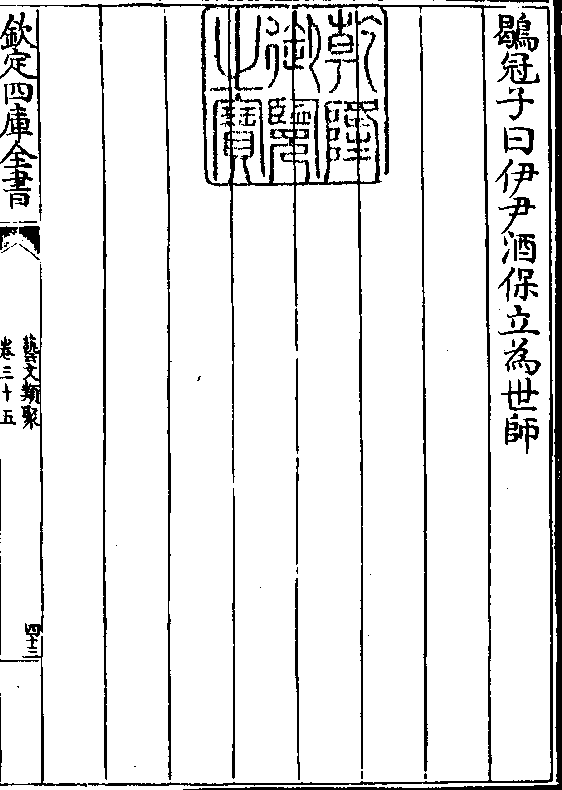 鶡冠子曰伊尹酒保立為世師
乾隆
御覽
之寶
欽定四庫全書
藝文類聚
卷三十五
四十三